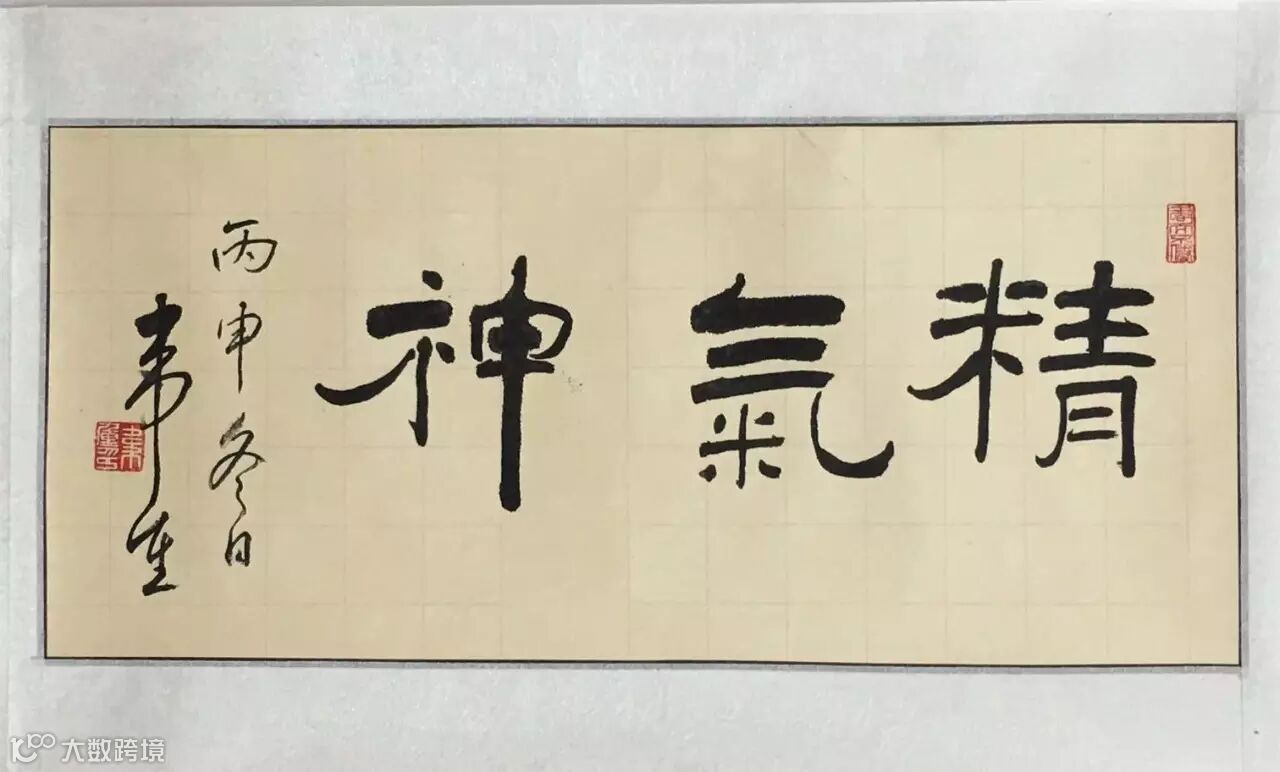 精氣神
丙申冬日
大数跨境